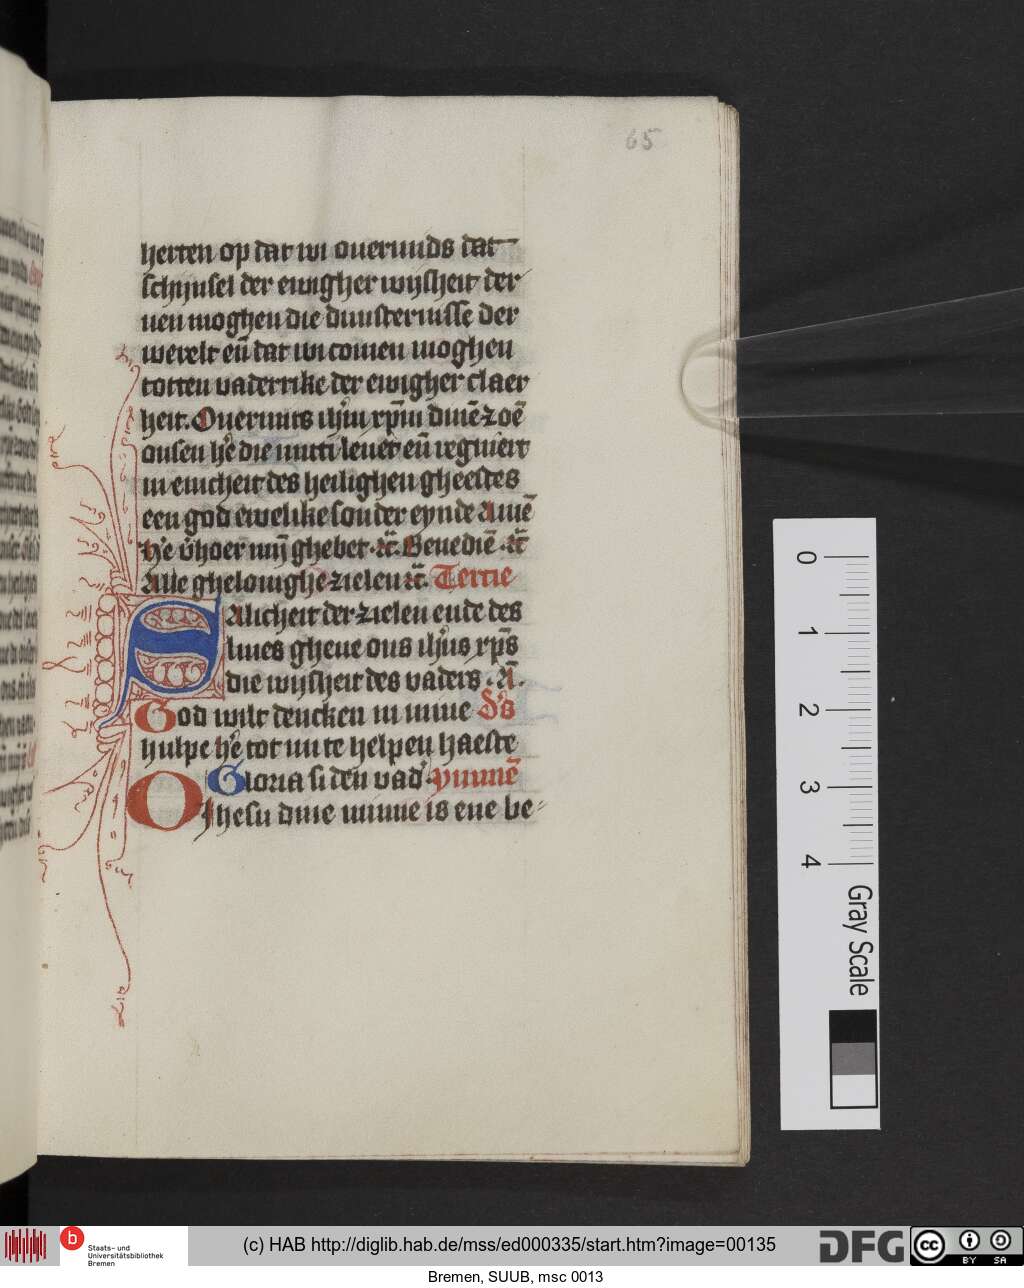 65
herten op dat wi ouermids dat
schijnsel der ewigher wijsheit der
uen moghen die duusternisse der
werelt eñ dat wi comen moghen
totten vaderrike der ewigher claer
heit. Ouermits ihm xpm
onsen he die mitti leuet eñ regniert
in eincheit des heilighen gheestes
een god ewelike sonder eynde Amē
he vhoer mijn ghebet .&c. Benedie .&c
Alle ghelouighe zielen &c. Tercie
Salicheit der zielen ende des
liues gheue ons ihus xps
die wijsheit des vaders . A.
God wilt dencken in mine ds
hulpe he tot mi te helpen haeste
Gloria si den vad' ymmē
O Ihesu dine minne is ene be
0
1
2
3
4
Gray Scale
b
Staats- und
Universitätsbibliothek
Bremen
(c) HAB http://diglib.hab.de/mss/ed000335/start.htm?image=00135
DFG
cc
BY SA
Bremen, SUUB, msc 0013